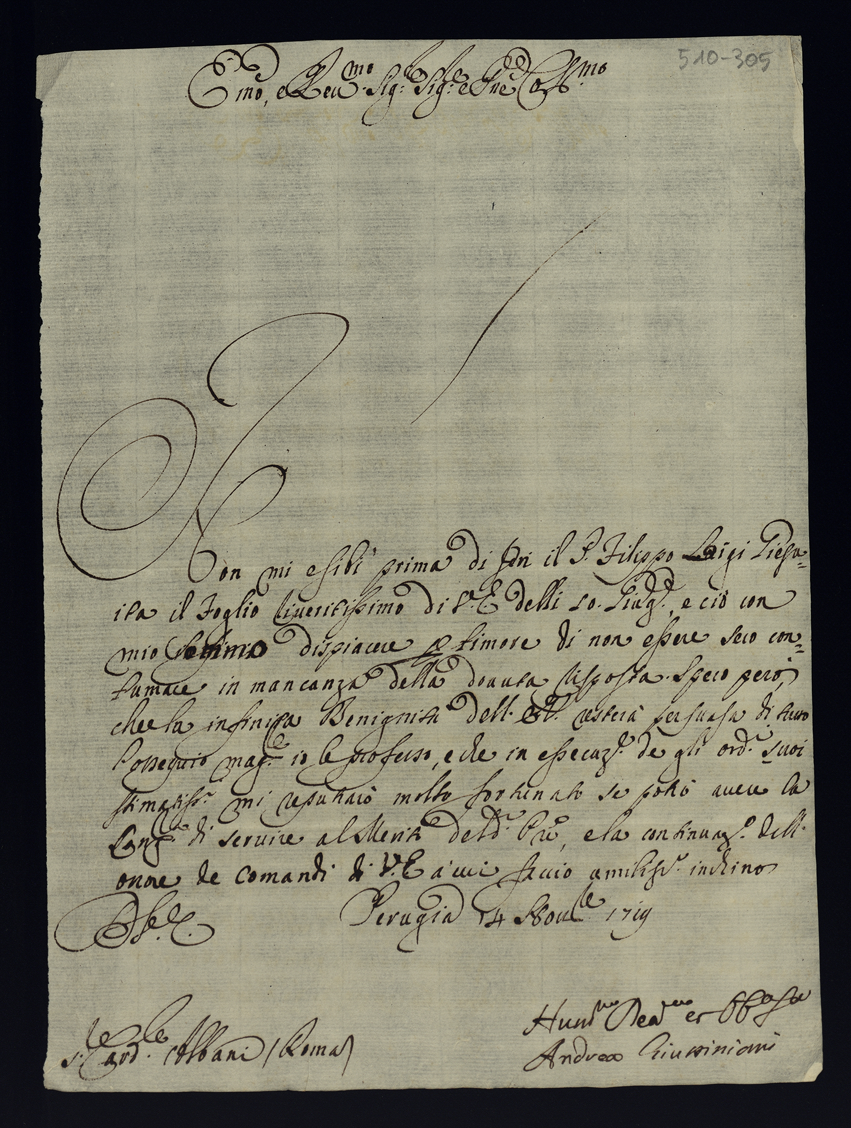 510-305
Em̃o, e Reu.mo Sig.r Sig.r e Pñe Coll.mo
Non mi esibì prima di jeri il P. Filippo Luigi Giesu=
ita il Foglio riueritissimo di V.E. delli 10. Giug.o, e ciò con
mio sommo dispiacere p timore di non essere seco con=
tumace in mancanza della douuta risposta. Spero però,
che la infinita Benignità dell' E.V. resterà persuasa di tutto
l'ossequio mag.re io le professo, e che in essecuz.e de gli ord.i suoi
stimatiss.i mi reputarò molto fortunato se potrò auere la
di seruire al Merito del d.o Pre, e la continuaz.e dell'
onore de comandi di V.E. a cui faccio umiliss.o inchino
Perugia 14 Nou.re 1719
S.r Card.le Albani (Roma)
Hum.mo Deu.mo et Obb.mo Se.re
Andrea Giustiniani